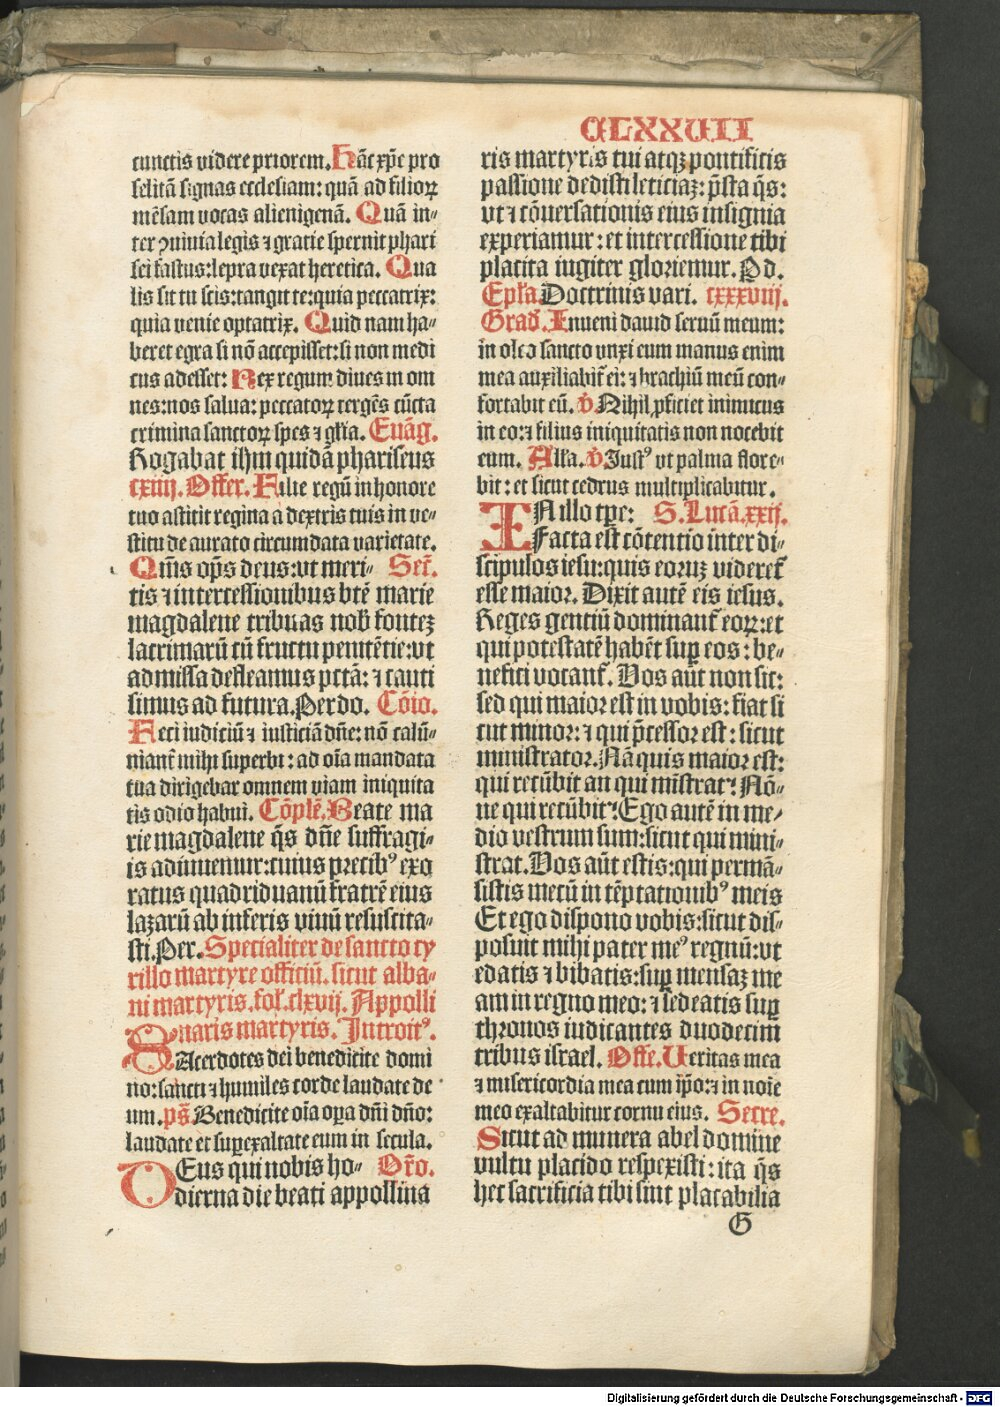 CLXXVII
cunctis videre priorem. Hāc xp̄e pro
selitā signas ecclesiam: quā ad filioꝝ
mēsam vocas alienigenā. Quā in-
ter ↄuiuia legis ⁊ gratie spernit phari
sei fastus: lepra vexat heretica. Qua
lis sit tu scis: tangit te: quia peccatrix:
quia venie optatrix. Quid nam ha-
beret egra si nō accepisset: si non medi
cus adesset: Rex regum diues in om
nes: nos salua: peccatoꝝ tergēs cūcta
crimina sanctoꝝ spes ⁊ gl̄ia. Euāg.
Rogabat ihm quidā phariseus
cxiiij. Offer. Filie regū in honore
tuo astitit regina a dextris tuis in ve-
stitu de aurato circumdata varietate.
Qm̄s op̄s deus: vt meri- Sec̄.
tis ⁊ intercessionibus btē marie
magdalene tribuas nob̄ fontez
lacrimarū cū fructu penitētie: vt
admissa defleamus pctā: ⁊ cauti
simus ad futura. Per do. Cōio.
Feci iudiciū ⁊ iusticiā dn̄e: nō calū-
niant̄ mihi superbi: ad oīa mandata
tua dirigebar omnem viam iniquita
tis odio habui. Cōplē. Beate ma
rie magdalene q̄s dn̄e suffragi-
is adiuuemur: cuius precibꝰ exo
ratus quadriduanū fratrē eius
lazarū ab inferis viuū resuscita-
sti. Per. Specialiter de sancto cy
rillo martyre officiū. sicut alba-
ni martyris. fol̄. clxvij. Appolli
naris martyris. Introitꝰ.
SAcerdotes dei benedicite domi
no: sancti ⁊ humiles corde laudate de
um. ps̄. Benedicite oīa oꝑa dn̄i dn̄o:
laudate et suꝑexaltate eum in secula.
DEus qui nobis ho- Or̄o.
dierna die beati appollina
ris martyris tui atqꝫ pontificis
passione dedisti leticiaꝫ: p̄sta q̄s:
vt ⁊ cōuersationis eius insignia
experiamur: et intercessione tibi
placita iugiter glorienur. Pd.
Epl̄a. Doctrinis vari. cxxxviij.
Grad̄. Inueni dauid seruū meum:
in oleo sancto vnxi eum manus enim
mea auxiliabit̄ ei: ⁊ brachiū meū con-
fortabit eū. v̄. Nihil ꝓficiet inimicus
in eo: ⁊ filius iniquitatis non nocebit
eum. All̄a. v̄. Iustꝰ vt palma flore-
bit: et sicut cedrus multiplicabitur.
IN illo tp̄e: S. Lucā. xxij.
Facta est cōtentio inter di-
scipulos iesu: quis eoruꝫ videret̄
esse maior. Dixit autē eis iesus.
Reges gentiū dominant̄ eoꝝ: et
qui potestatē habēt suꝑ eos: be-
nefici vocant̄. Vos aūt non sic:
sed qui maior est in vobis: fiat si
cut minor: ⁊ qui p̄cessor est: sicut
ministrator. Nā quis maior est:
qui recūbit an qui mīstrat? Nō-
ne qui recūbit? Ego autē in me-
dio vestrum sum: sicut qui mini-
strat. Vos aūt estis: qui permā-
sistis mecū in tēptationibꝰ meis
Et ego dispono vobis: sicut dis-
posuit mihi pater meꝰ regnū: vt
edatis ⁊ bibatis: suꝑ mensaꝫ me
am in regno meo: ⁊ sedeatis suꝑ
thronos iudicantes duodecim
tribus israel. Offe. Veritas mea
⁊ misericordia mea cum ip̄o: ⁊ in noīe
meo exaltabitur cornu eius. Secre.
Sicut ad munera abel domine
vultu placido respexisti: ita q̄s
hec sacrificia tibi sint placabilia
G
Digitalisierung gefördert durch die Deutsche Forschungsgemeinschaft - DFG